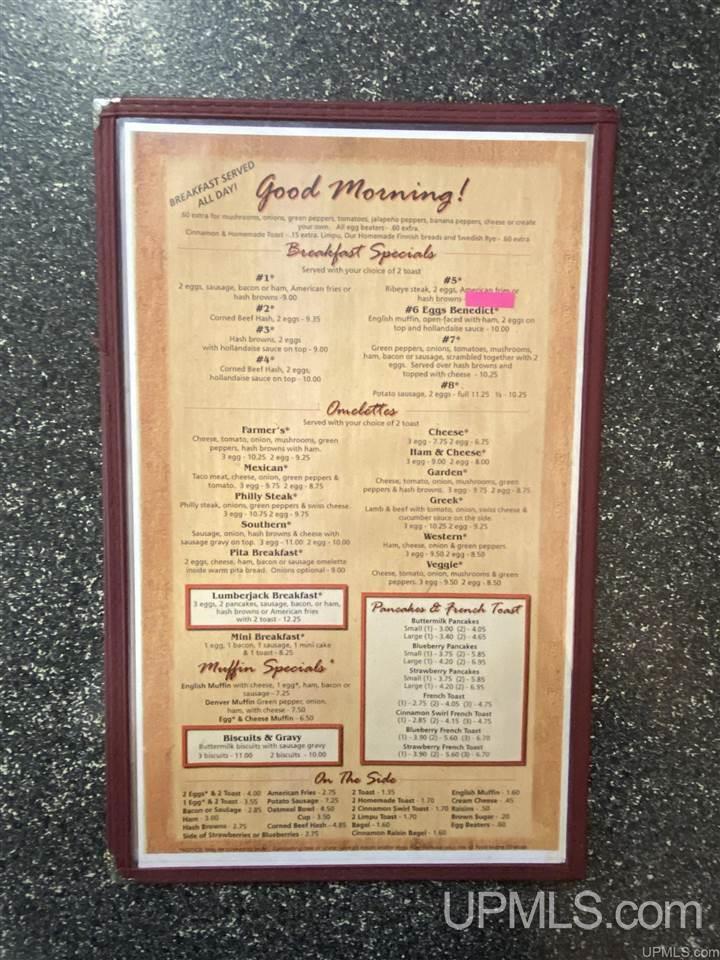 BREAKFAST SERVED
ALL DAY!
Good Morning!
.60 extra for mushrooms, onions, green peppers, tomatoes, jalapeño peppers, banana peppers, cheese or create
your own. All egg beaters - .60 extra.
Cinnamon & Homemade Toast - .15 extra. Limpu, Our Homemade Finnish breads and Swedish Rye - .60 extra
Breakfast Specials
Served with your choice of 2 toast
#1*
2 eggs, sausage, bacon or ham, American fries or
hash browns -9.00
#2*
Corned Beef Hash, 2 eggs - 9.35
#3*
Hash browns, 2 eggs
with hollandaise sauce on top - 9.00
#4*
Corned Beef Hash, 2 eggs,
hollandaise sauce on top - 10.00
#5*
Ribeye steak, 2 eggs, American fries or
hash browns
#6 Eggs Benedict*
English muffin, open-faced with ham, 2 eggs on
top and hollandaise sauce - 10.00
#7*
Green peppers, onions, tomatoes, mushrooms,
ham, bacon or sausage, scrambled together with 2
eggs. Served over hash browns and
topped with cheese - 10.25
#8*
Potato sausage, 2 eggs - full 11.25 ½ - 10.25
Omelettes
Served with your choice of 2 toast
Farmer's*
Cheese, tomato, onion, mushrooms, green
peppers, hash browns with ham.
3 egg - 10.25 2 egg - 9.25
Mexican*
Taco meat, cheese, onion, green peppers &
tomato. 3 egg - 9.75 2 egg - 8.75
Philly Steak*
Philly steak, onions, green peppers & swiss cheese.
3 egg - 10.75 2 egg - 9.75
Southern*
Sausage, onion, hash browns & cheese with
sausage gravy on top. 3 egg - 11.00 2 egg - 10.00
Pita Breakfast*
2 eggs, cheese, ham, bacon or sausage omelette
inside warm pita bread. Onions optional - 9.00
Cheese*
3 egg - 7.75 2 egg - 6.75
Ham & Cheese*
3 egg - 9.00 2 egg - 8.00
Garden*
Cheese, tomato, onion, mushrooms, green
peppers & hash browns. 3 egg - 9.75 2 egg - 8.75
Greek*
Lamb & beef with tomato, onion, swiss cheese &
cucumber sauce on the side.
3 egg - 10.25 2 egg - 9.25
Western*
Ham, cheese, onion & green peppers.
3 egg - 9.50 2 egg - 8.50
Veggie*
Cheese, tomato, onion, mushrooms & green
peppers. 3 egg - 9.50 2 egg - 8.50
Lumberjack Breakfast*
3 eggs, 2 pancakes, sausage, bacon, or ham,
hash browns or American fries
with 2 toast - 12.25
Mini Breakfast*
1 egg, 1 bacon, 1 sausage, 1 mini cake
& 1 toast - 8.25
Muffin Specials*
English Muffin with cheese, 1 egg*, ham, bacon or
sausage - 7.25
Denver Muffin Green pepper, onion,
ham, with cheese - 7.50
Egg* & Cheese Muffin - 6.50
Biscuits & Gravy
Buttermilk biscuits with sausage gravy
3 biscuits - 11.00 2 biscuits - 10.00
Pancakes & French Toast
Buttermilk Pancakes
Small (1) - 3.00 (2) - 4.05
Large (1) - 3.40 (2) - 4.65
Blueberry Pancakes
Small (1) - 3.75 (2) - 5.85
Large (1) - 4.20 (2) - 6.95
Strawberry Pancakes
Small (1) - 3.75 (2) - 5.85
Large (1) - 4.20 (2) - 6.95
French Toast
(1) - 2.75 (2) - 4.05 (3) - 4.75
Cinnamon Swirl French Toast
(1) - 2.85 (2) - 4.15 (3) - 4.75
Blueberry French Toast
(1) - 3.90 (2) - 5.60 (3) - 6.70
Strawberry French Toast
(1) - 3.90 (2) - 5.60 (3) - 6.70
On The Side
2 Eggs* & 2 Toast - 4.00
1 Egg* & 2 Toast - 3.55
Bacon or Sausage - 2.85
Ham - 3.00
Hash Browns - 2.75
Side of Strawberries or Blueberries - 2.75
American Fries - 2.75
Potato Sausage - 7.25
Oatmeal Bowl - 4.50
Cup - 3.50
Corned Beef Hash - 4.85
2 Toast - 1.35
2 Homemade Toast - 1.70
2 Cinnamon Swirl Toast - 1.70
2 Limpu Toast - 1.70
Bagel - 1.60
Cinnamon Raisin Bagel - 1.60
English Muffin - 1.60
Cream Cheese - .45
Raisins - .50
Brown Sugar - .20
Egg Beaters - .60
UPMLS.com
UPMLS.com